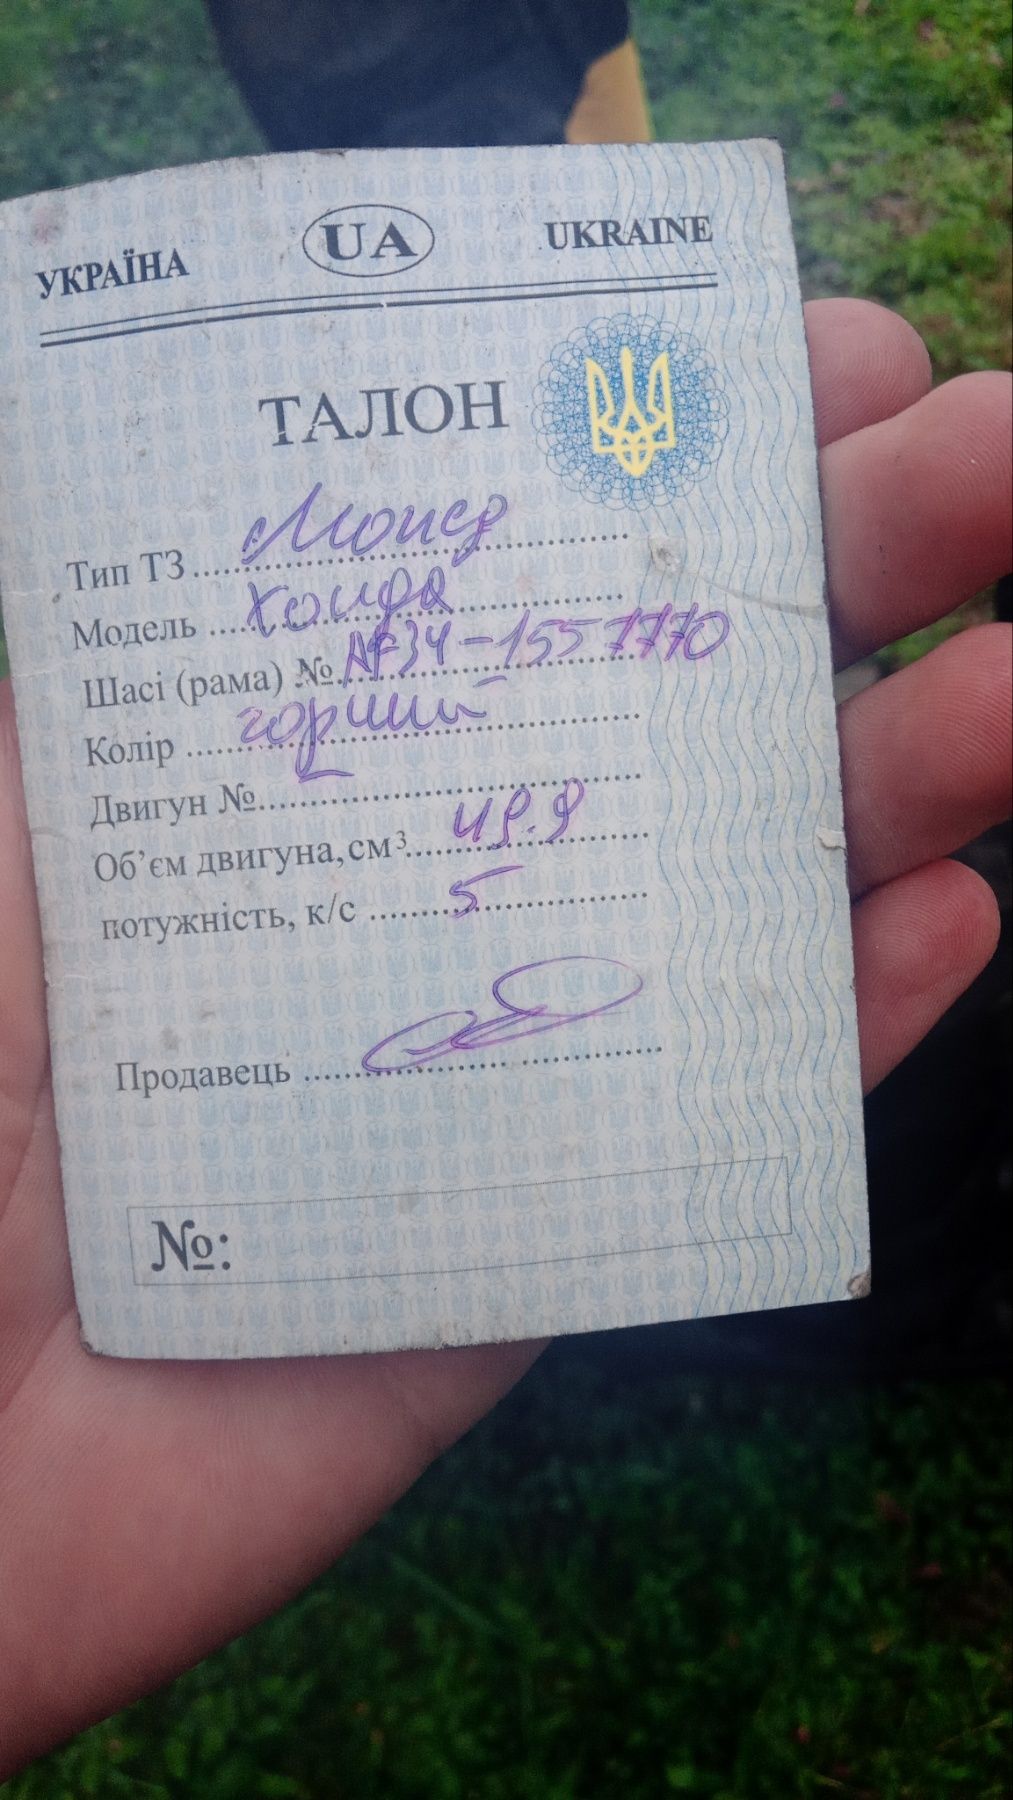 УКРАЇНА UA UKRAINE
ТАЛОН
Тип ТЗ Мопед
Модель Хонда
Шасі (рама) № AF34-1557770
Колір чорний
Двигун №
Об'єм двигуна, см³ 49.9
потужність, к/с 5
Продавець
№: